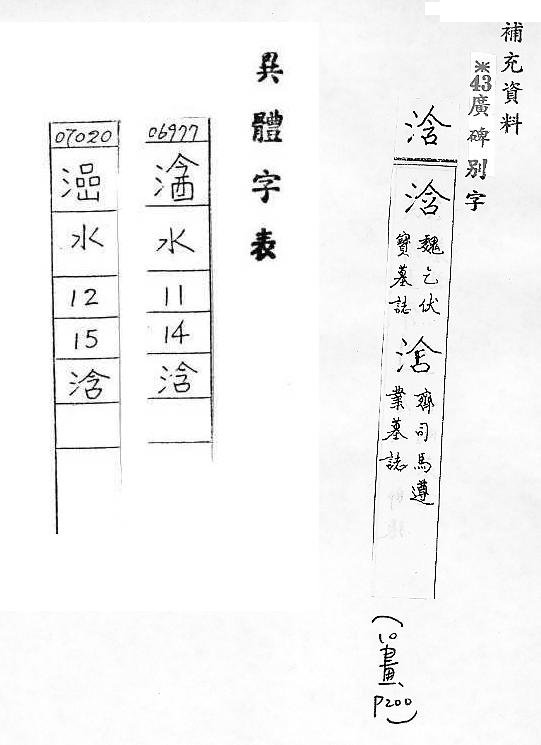 補充資料
※43廣碑別字
浛
浛
魏乞伏
寶墓誌
齊司馬遵
業墓誌
(10畫、P200)
異體字表
06977
水
11
14
浛
07020
水
12
15
浛